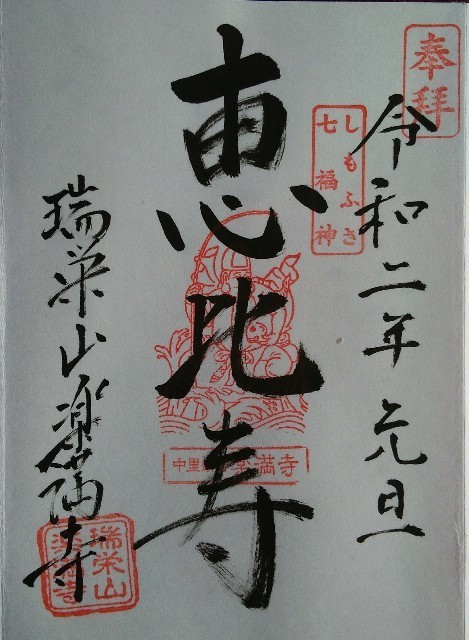 奉拝
令和二年元旦
しもふさ
七福神
恵比寿
中里 楽満寺
瑞栄山楽満寺
瑞栄山
楽満寺